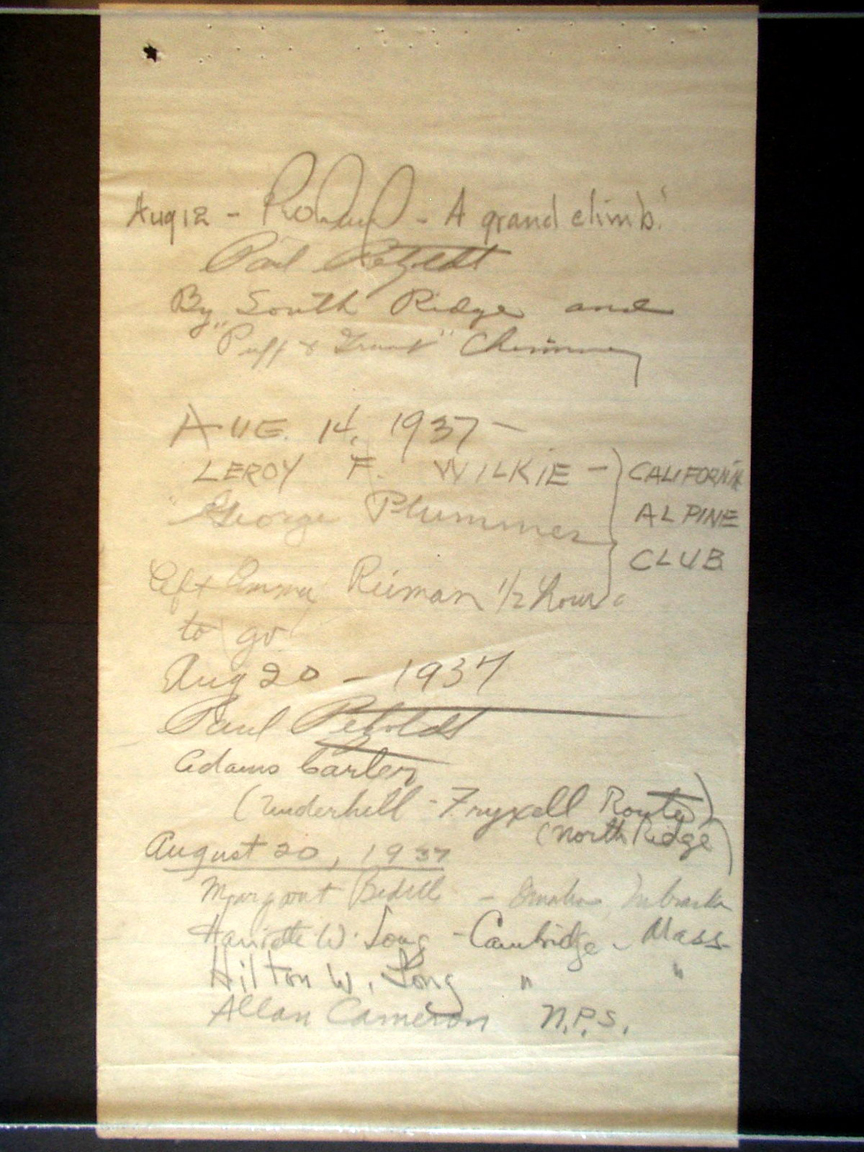 Aug 12 - - A grand climb.
Paul Petzoldt
By South Ridge and
"Puff & Grunt" Chimney
AUG. 14, 1937 -
LEROY F. WILKIE - CALIFORNIA
George Plummer ALPINE
CLUB
Left Emma Reiman 1/2 hour
to go
Aug 20 - 1937
Paul Petzoldt
Adams Carter
(Underhill - Fryxell Route)
(North Ridge)
August 20, 1937
Margaret Bedell - Omaha, Nebraska
Harriette W. Long - Cambridge - Mass
Hilton W. Long " "
Allan Cameron N.P.S.